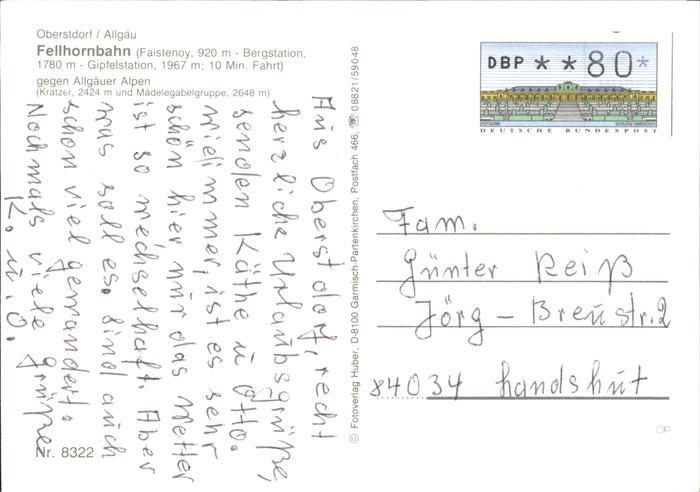 Oberstdorf / Allgäu
Fellhornbahn (Faistenoy, 920 m - Bergstation,
1780 m - Gipfelstation, 1967 m; 10 Min. Fahrt)
gegen Allgäuer Alpen
(Kratzer, 2424 m und Mädelegabelgruppe, 2648 m)
Aus Oberstdorf, recht
herzliche Urlaubsgrüße,
senden Käthe u Otto.
wie immer, ist es sehr
schön hier nur das Wetter
ist so wechselhaft. Aber
was soll es. sind auch
schon viel gewandert.
Nochmals viele Grüße
K. u. O.
Nr. 8322
© Fotoverlag Huber, D-8100 Garmisch-Partenkirchen, Postfach 466, ☎ 08821/59048
DBP **80*
POTSDAM SCHLOSS SANSSOUCI
DEUTSCHE BUNDESPOST
Fam.
Günter Reiß
Jörg - Breustr. 2
84034 Landshut